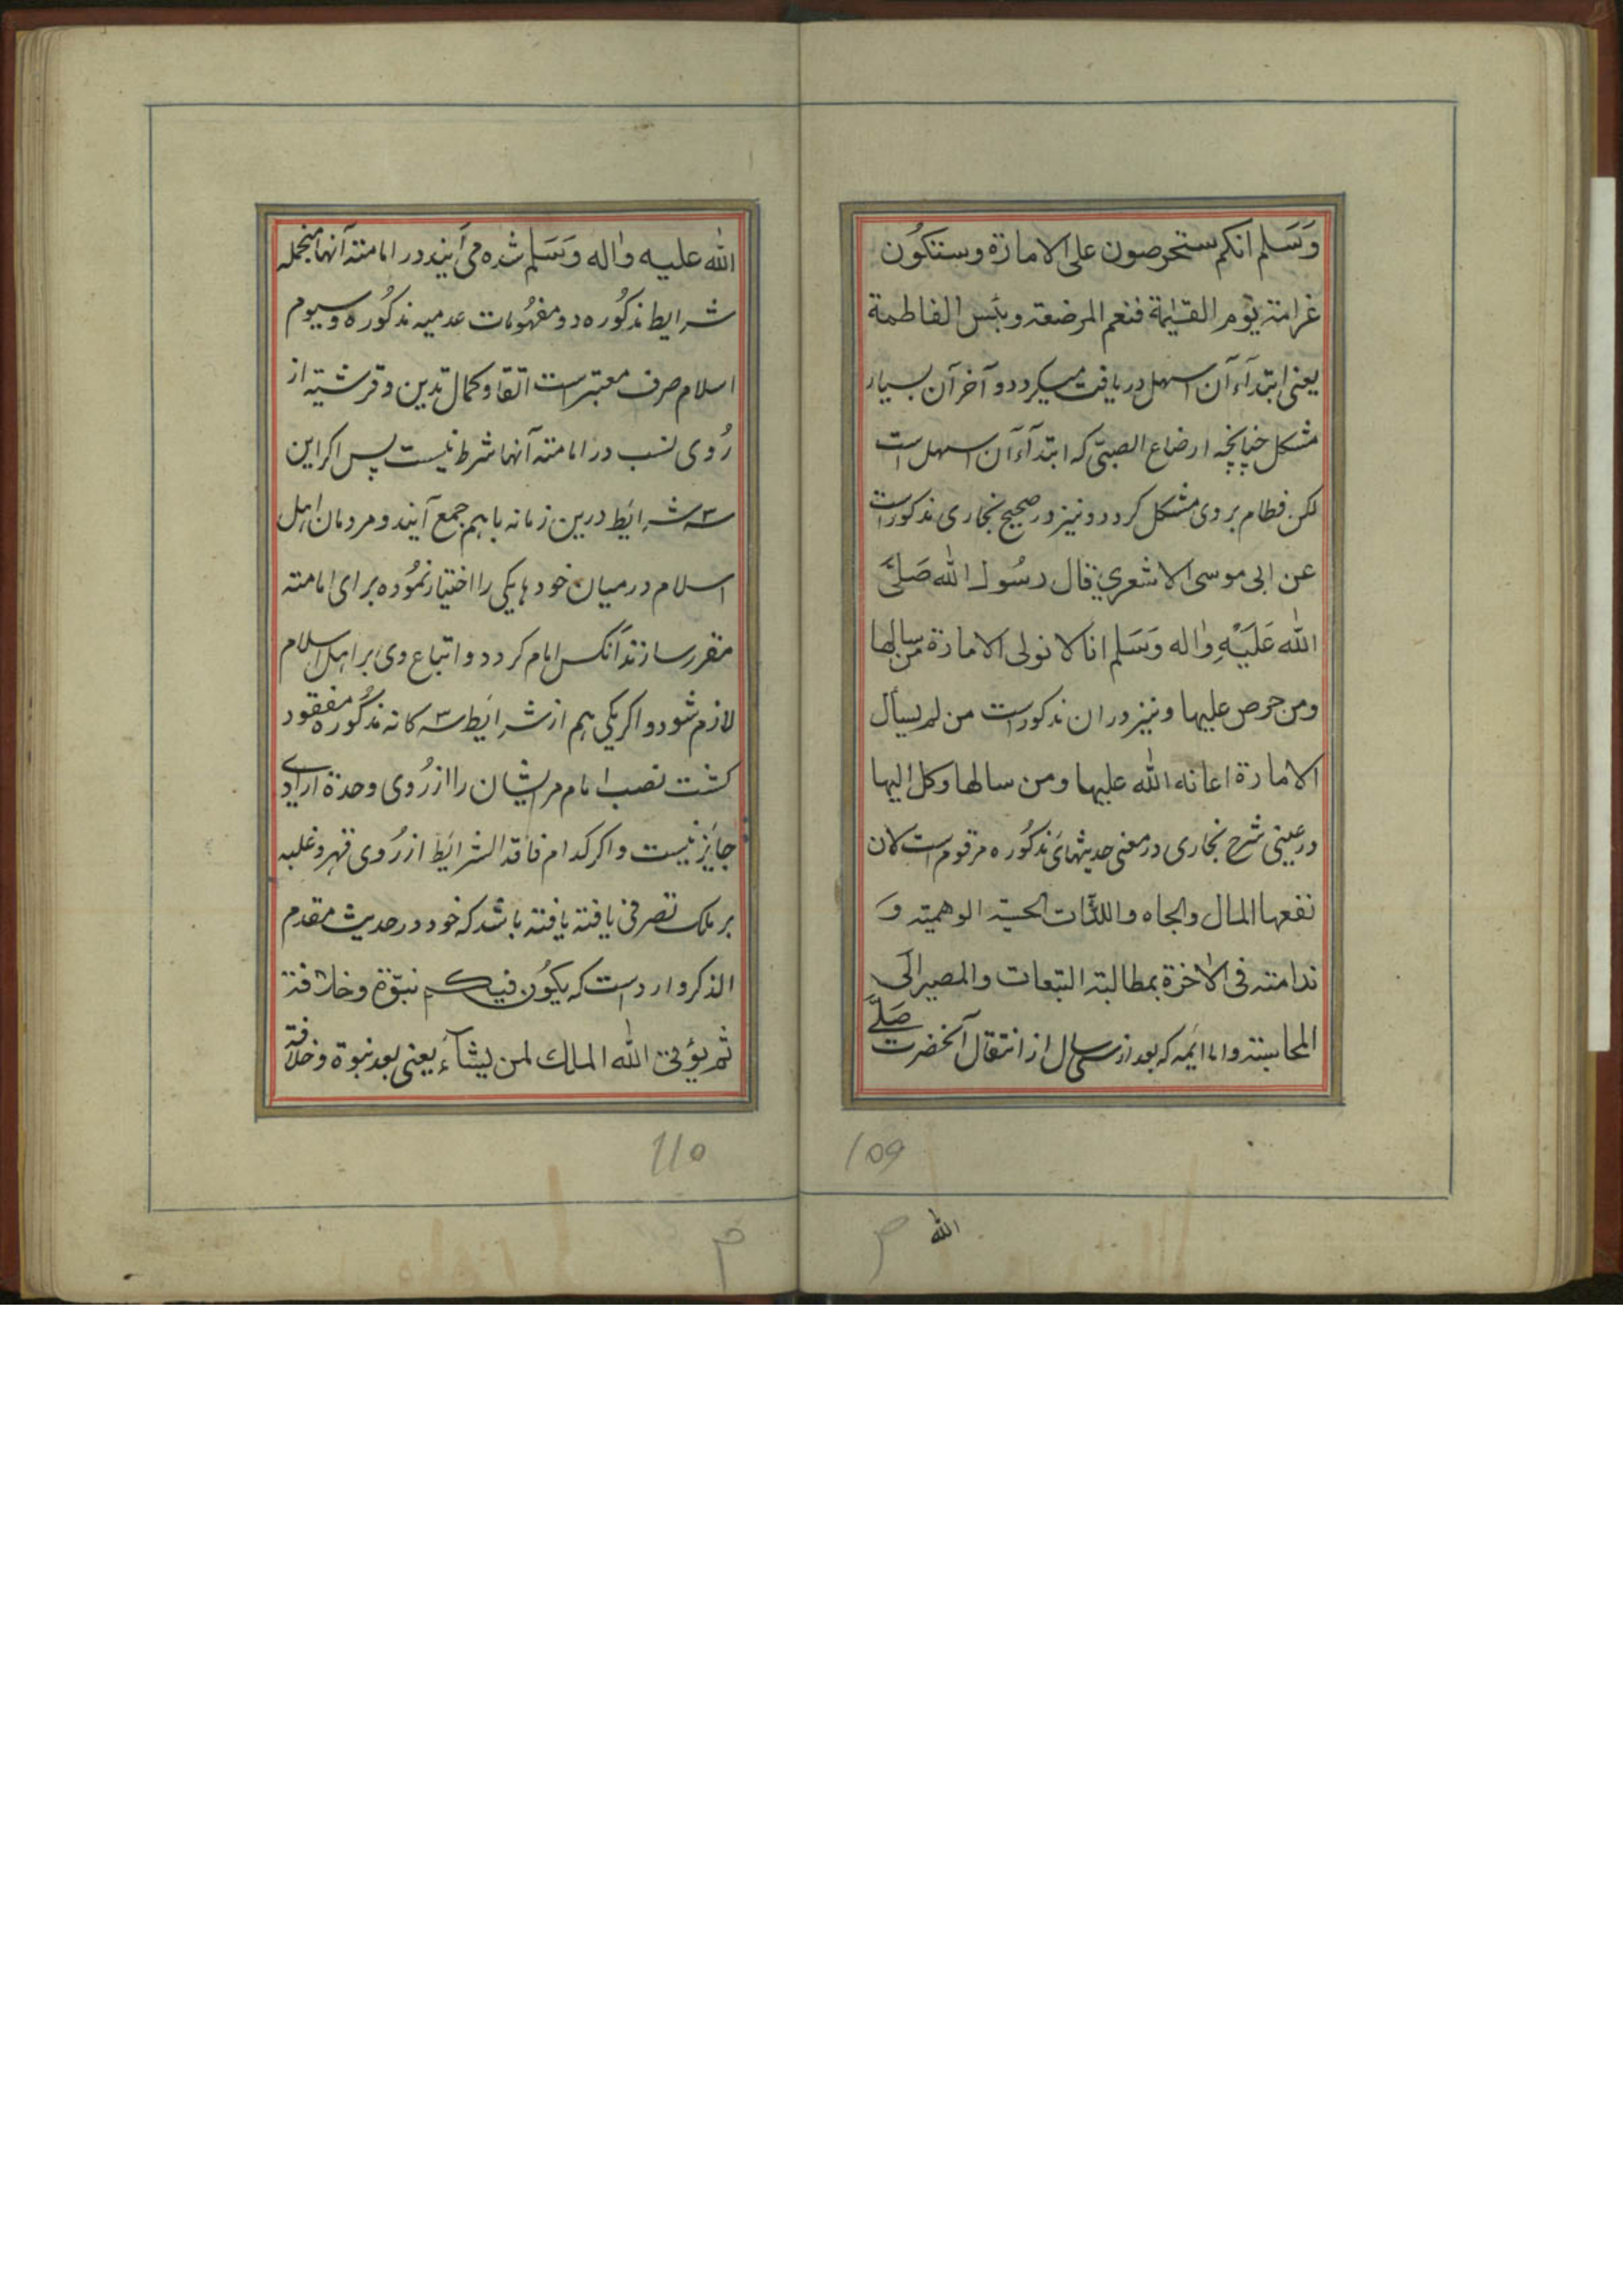 وَسَلم انكم ستحرصون على الامارة وستكُون
غرامته يوم القيٰمة فنعم المرضعته وبئس الفاطمة
يعنى ابتدآء آن اسهل دريافت ميكردد و آخر آن بسيار
مشكل چنانچه ارضاع الصبىّ كه ابتدآء آن اسهل است
لكن فطام بروى مشكل كردد و نيز در صحيح بخارى مذكور است
عن ابى موسى الاشعري قال رسُول الله صَلىَّ
الله عَلَيْهِ واٰله وَسَلم انا لا نولى الامارة من سالها
ومن حرص عليها و نيز دران مذكور است من لم يسأل
الامارة اعانه الله عليها ومن سالها وكل اليها
در عينى شرح بخارى در معنى حديثهاى مذكُوره مرقوم است لان
نفعها المال والجاه واللذّات الحسيّه الوهميته وَ
ندامته فى الاٰخرة بمطالبته التبعات والمصير الَى
المحاسبته و اما ائمه كه بعد از سى سال از انتقال آنحضرت صَلىَّ
109
الله
الله عليه واٰله وَسَلم شده مى آيند در امامته آنها منجمله
شرايط مذكُوره دو مفهُومات عدميه مذكُوره و سيوم
اسلام صرف معتبر است اتقا و كمال تدين و قرشيته از
رُوى نسب در امامته آنها شرط نيست پس اكر اين
سه شرائط درين زمانه باهم جمع آيند و مردمان اهل
اسلام درميان خودها يكى را اختيار نمُوده براى امامته
مقرر سازند آنكس امام كردد و اتباع وى بر اهل اسلام
لازم شود و اكر يكى هم از شرائط سه كانه مذكُوره مفقود
كشت نصب امام مر ايشان را از رُوى وحدة اراى
جائز نيست و اكر كدام فاقد الشرائط از رُوى قهر و غلبه
بر ملك تصرفى يافته يافته باشد كه خود در حديث مقدم
الذكر وارد است كه يكُون فيكم نبوّة وخلافة
ثم يؤتى الله الملك لمن يشآء يعنى بعد نبوة وخلافة
110